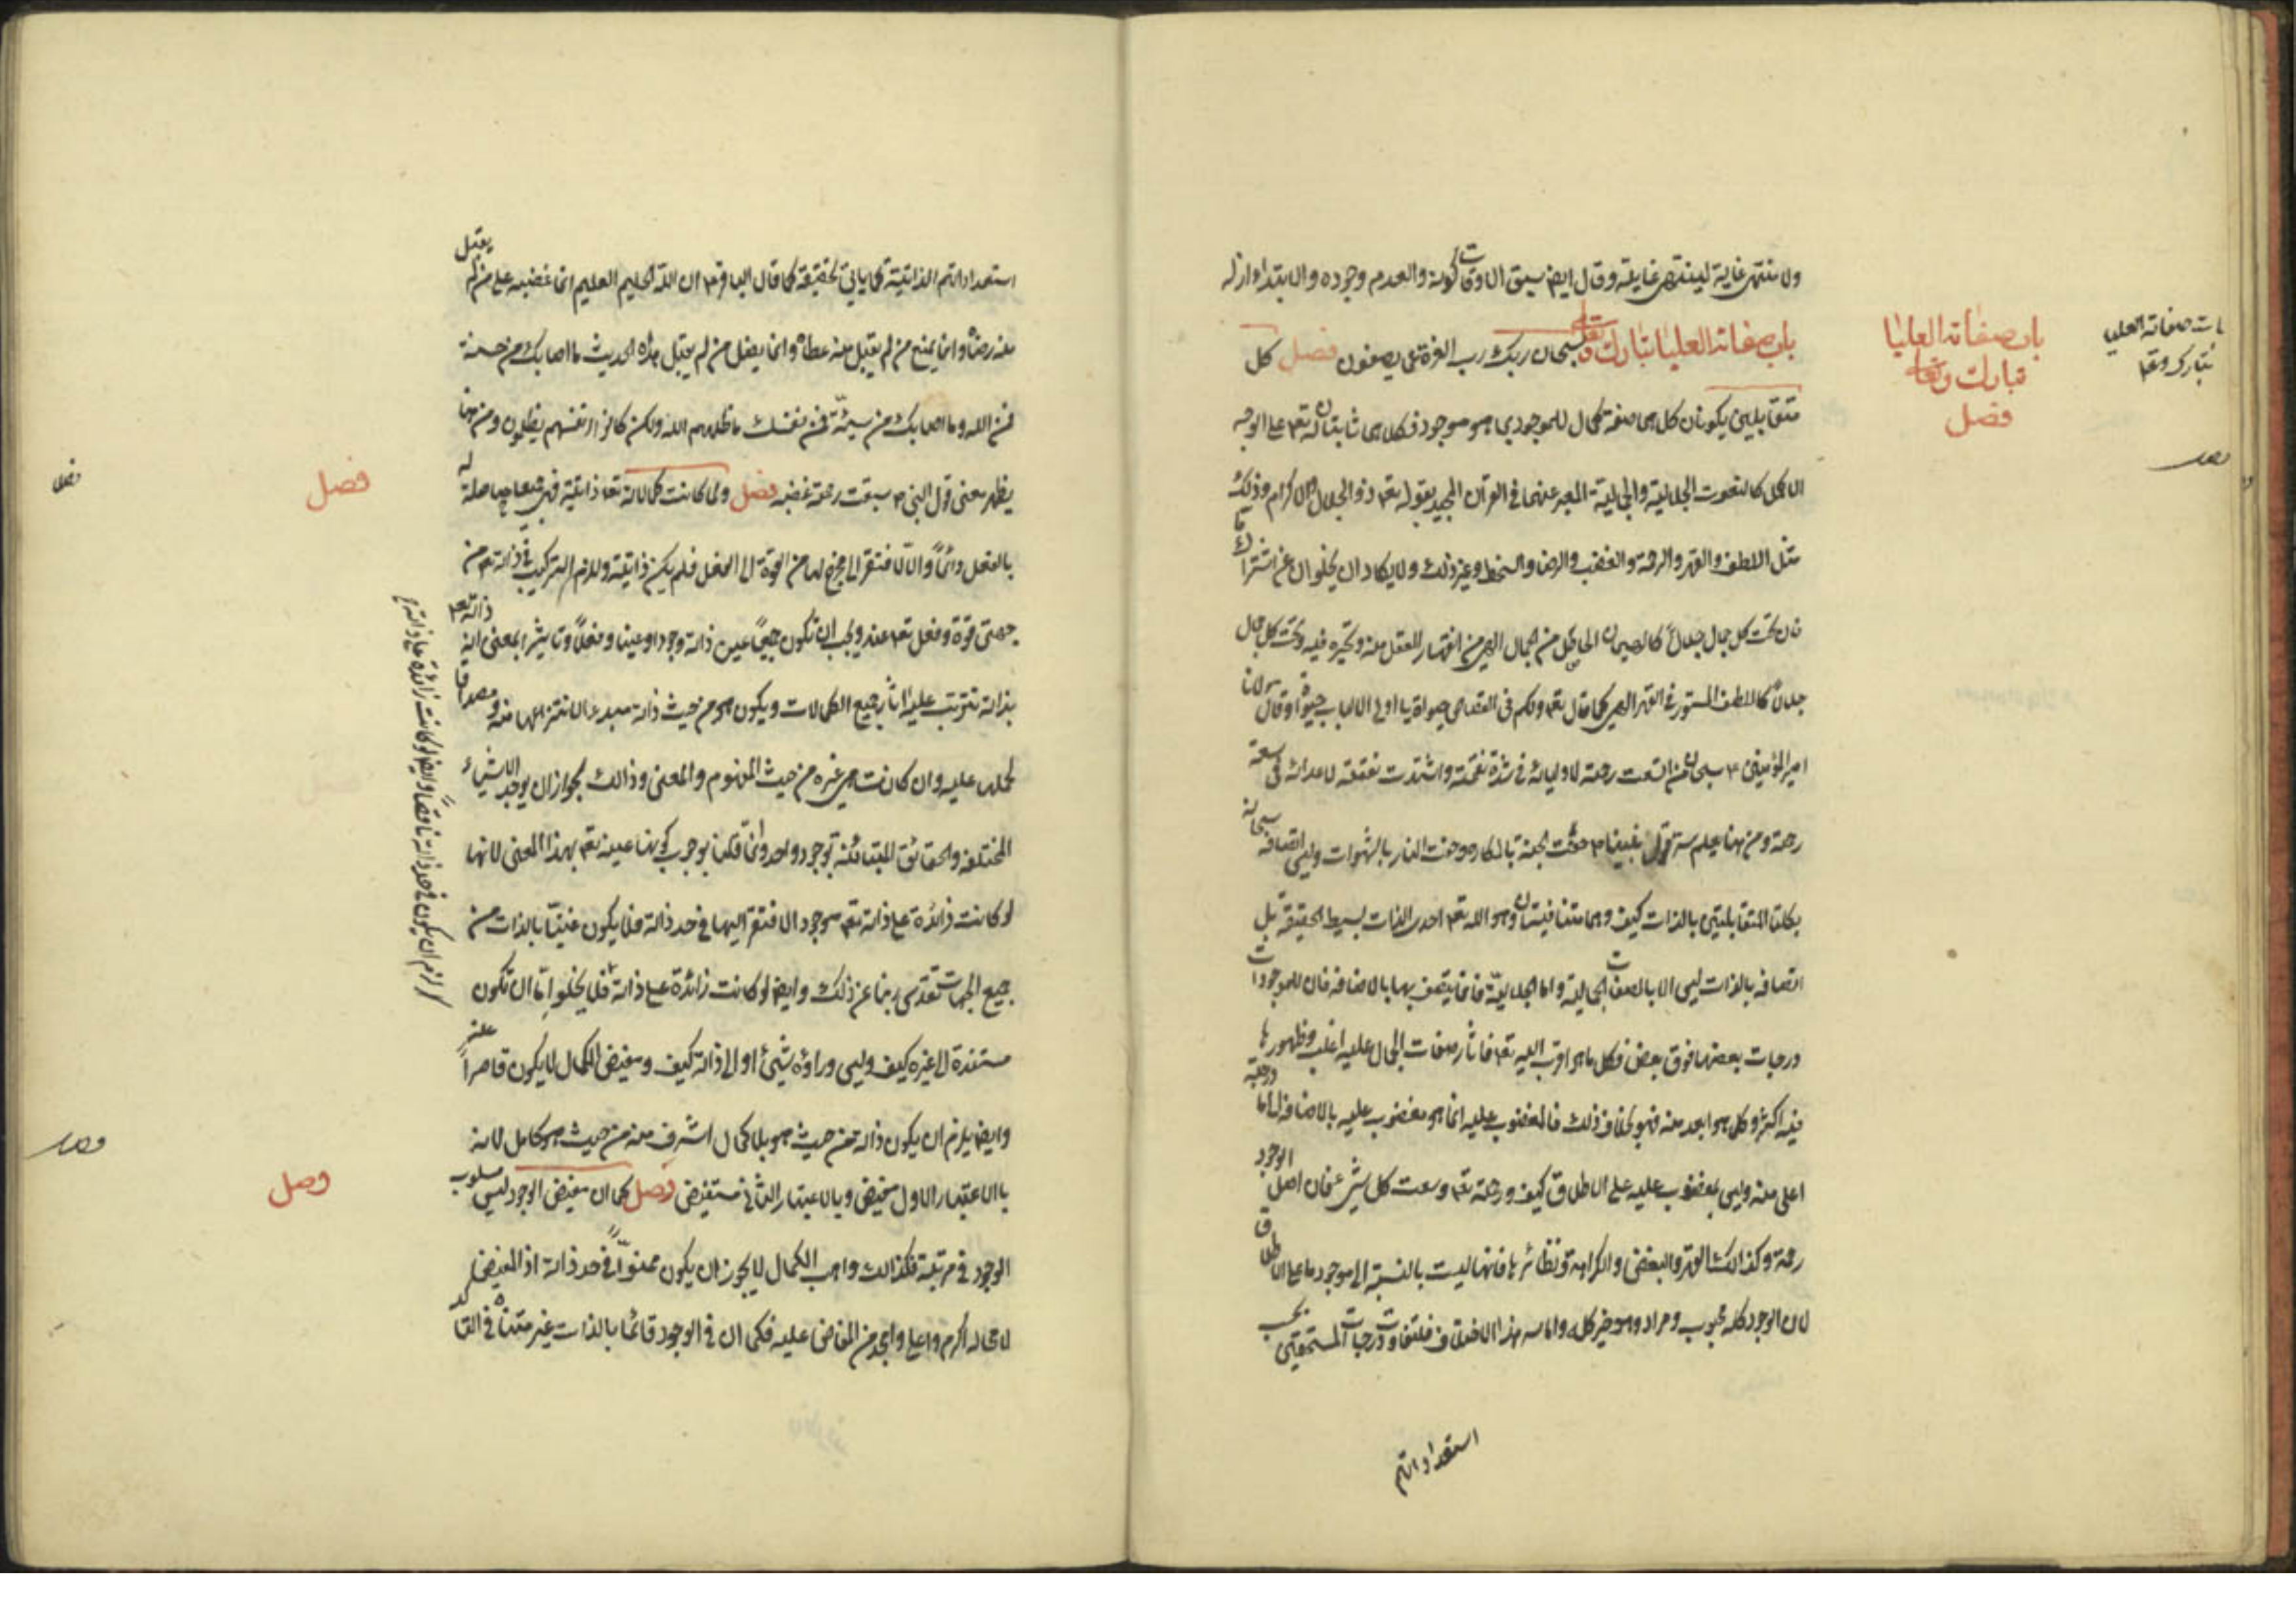 ولا منتهى غاية لينتهى غايته وقال ايض سبق الاوقات كونه والعدم وجوده والابتداء ازله
باب صفاته العليا تبارك وتعالى سبحان ربك رب العزة عما يصفون فصل كل
متقابلين يكونان كل هما صفة كمال للموجود بما هو موجود فكلاهما ثابتان له تعه على الوجه
الاكمل كالنعوت الجلالية والجمالية المعبر عنهما في القرآن المجيد بقوله تعه ذو الجلال والاكرام وذلك
مثل اللطف والقهر والرحمة والغضب والرضا والسخط وغير ذلك ولا يكاد ان يخلوان عن اشتراك ما
فان تحت كل جمال جلالاً كالهيمان الحاصل من الجمال الالهى من انقهار العقل منه وتحيره فيه وتحت كل جلال
جمالاً كاللطف المستور في القهر الالهى كما قال تعه ولكم في القصاص حيوة يا اولى الالباب وقال مولانا
امير المؤمنين ع سبحان من اتسعت رحمته لاوليائه في شدة نقمته واشتدت نقمته لاعدائه في سعة
رحمته ومن هنا يعلم سر قول نبينا ص حفت الجنة بالمكاره وحفت النار بالشهوات وليس اتصافه سبحانه
بكلتا المتقابلتين بالذات كيف وهما متنافيتان وهو الله تعه احدى الذات بسيط الحقيقة بل
اتصافه بالذات ليس الا بالصفات الجمالية واما الجلالية فانما يتصف بها بالاضافة فان للموجودات
درجات بعضها فوق بعض فكل ما هو اقرب اليه تعه فآثار صفات الجمال عليه اغلب وظهورها
فيه اكثر وكل ما هو ابعد منه فهو بخلاف ذلك فالمغضوب عليه انما هو مغضوب عليه بالاضافة الى ما درجته
اعلى منه وليس بمغضوب عليه على الاطلاق كيف ورحمته تعه وسعت كل شيء فان اصل الوجود
رحمة وكذلك القهر والبغض والكراهة ونظائرها فانها ليست بالنسبة الى موجود ما على الاطلاق
لان الوجود كله محبوب ومراد وهو خير كله واما سر هذا الاختلاف فلتفاوت درجات المستحقين بحسب
استعداداتهم
باب صفاته العليا
تبارك وتعالى
فصل
باب صفاته العليا
تبارك وتعه
فصل
استعداداتهم الذاتية كما يأتي تحقيقه كما قال الباقر ع ان الله الحليم العليم انما غضبه على من لم يقبل
منه رضاه وانما يمنع من لم يقبل منه عطاه وانما يضل من لم يقبل منه هداه الحديث ما اصابك من حسنة
فمن الله وما اصابك من سيئة فمن نفسك ما ظلمهم الله ولكن كانوا انفسهم يظلمون ومن هنا
يظهر معنى قول النبي ص سبقت رحمته غضبه فصل ولما كانت كمالاته تعه ذاتية فهى جميعا حاصلة له
بالفعل دائماً والا لافتقر الى مخرج لها من القوة الى الفعل فلم يكن ذاتية وللزم التركيب في ذاته تعه من
جهتى قوة وفعل تعه عنه ويجب ان تكون جميعاً عين ذاته وجودا وعينا وفعلاً وتاثيرا بمعنى ان ذاته تعه
بذاته تترتب عليه آثار جميع الكمالات ويكون هو من حيث ذاته مبدء لانتزاعها منه ومصداقا
لحملها عليه وان كانت هي غيره من حيث المفهوم والمعنى وذلك لجواز ان يوجد الاشياء
المختلفة والحقائق المتباينة بوجود واحد وانما قلنا بوجوب كونها عينه تعه بهذا المعنى لانها
لو كانت زائدة على ذاته تعه موجودا لافتقر اليها في حد ذاته فلا يكون غنيّا بالذات من
جميع الجهات تقدس ربنا عن ذلك وايض لو كانت زائدة على ذاته فلا يخلو امّا ان تكون
مستندة الى غيره كيف وليس وراؤه شيئ او الى ذاته كيف ومفيض الكمال لا يكون قاصراً عنه
وايض يلزم ان يكون ذاته من حيث هو بلا كمال اشرف منه من حيث هو كامل لانه
بالاعتبار الاول مفيض وبالاعتبار الثاني مستفيض وصل كما ان مفيض الوجود ليس مسلوب
الوجود في مرتبة فكذلك واهب الكمال لا يجوز ان يكون ممنوّاً في حد ذاته اذ المفيض
لا محالة اكرم واعلى وامجد من المفاض عليه فكما ان في الوجود قائما بالذات غير متناه في التاكد
لزم ان يكون في حد ذاته ناقصاً وايض لو كانت زائدة على ذاته
فصل
فصل
وصل
وصل